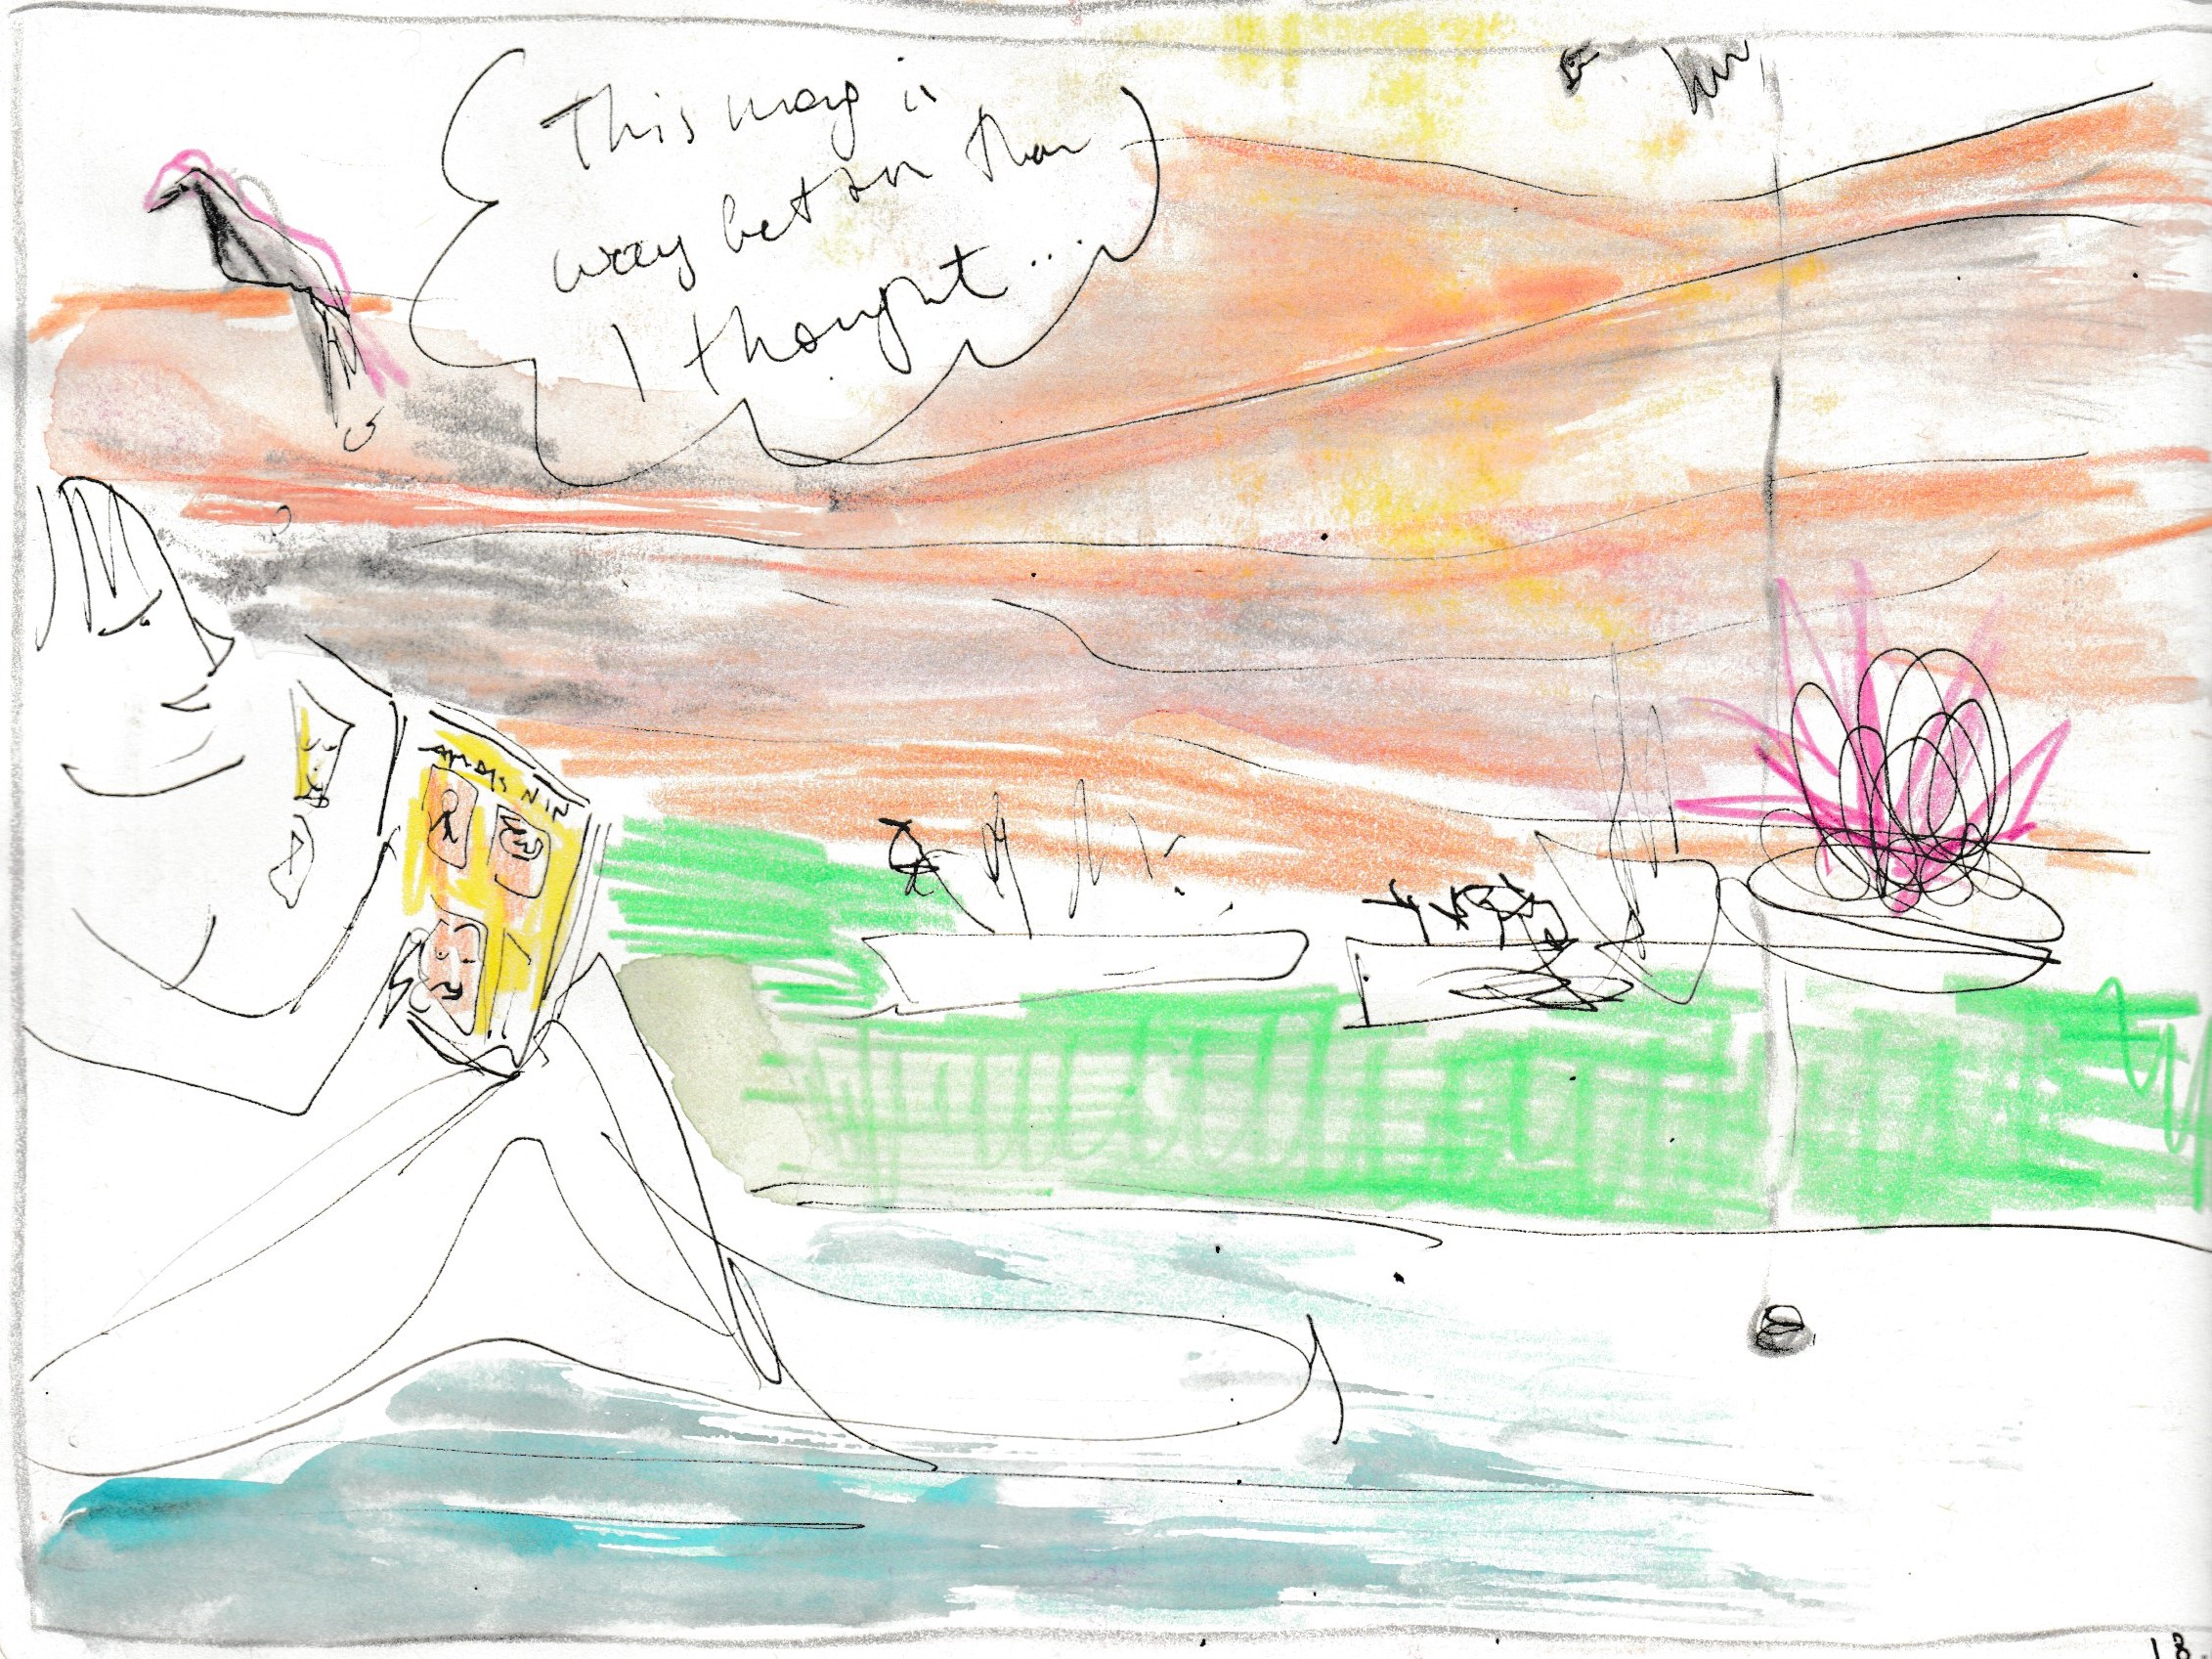 This mag is
way better than
I thought...
ANAIS NIN
18